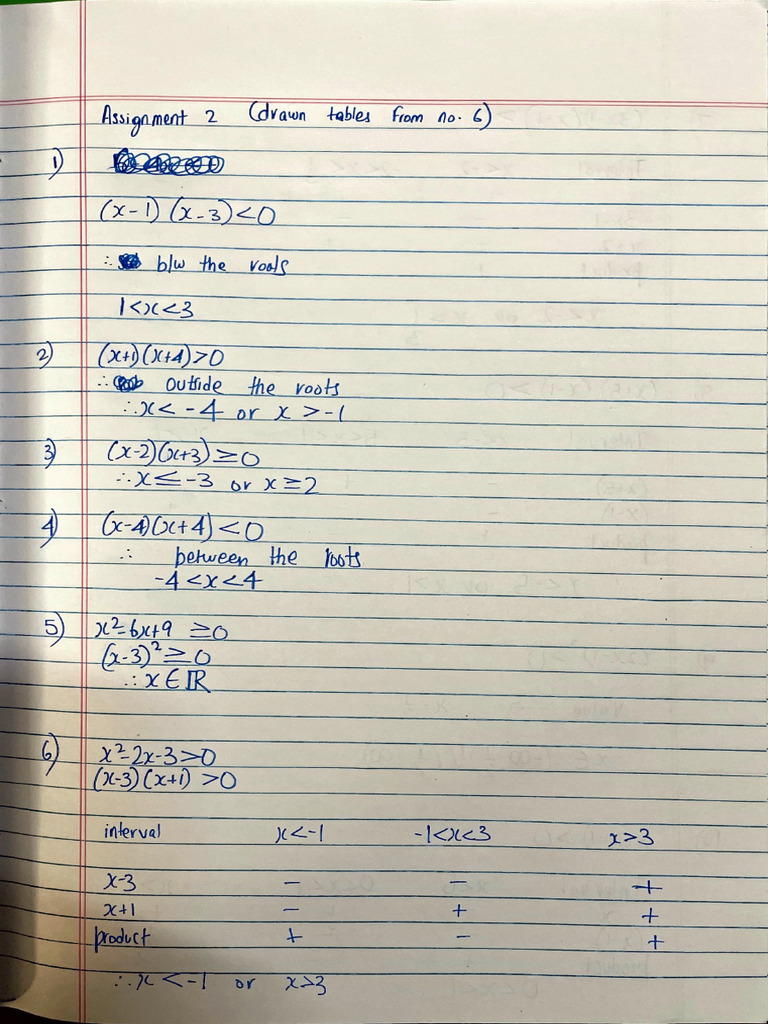 Assignment 2 (drawn tables from no. 6)
1)
(x-1) (x-3) < 0
∴ b/w the roots
1 < x < 3
2) (x+1)(x+4) > 0
∴ outside the roots
∴ x < -4 or x > -1
3) (x-2)(x+3) ≥ 0
∴ x ≤ -3 or x ≥ 2
4) (x-4)(x+4) < 0
∴ between the roots
-4 < x < 4
5) x²-6x+9 ≥ 0
(x-3)² ≥ 0
∴ x ∈ ℝ
6) x²-2x-3 > 0
(x-3)(x+1) > 0
interval x < -1 -1 < x < 3 x > 3
x-3 - - +
x+1 - + +
product + - +
∴ x < -1 or x > 3